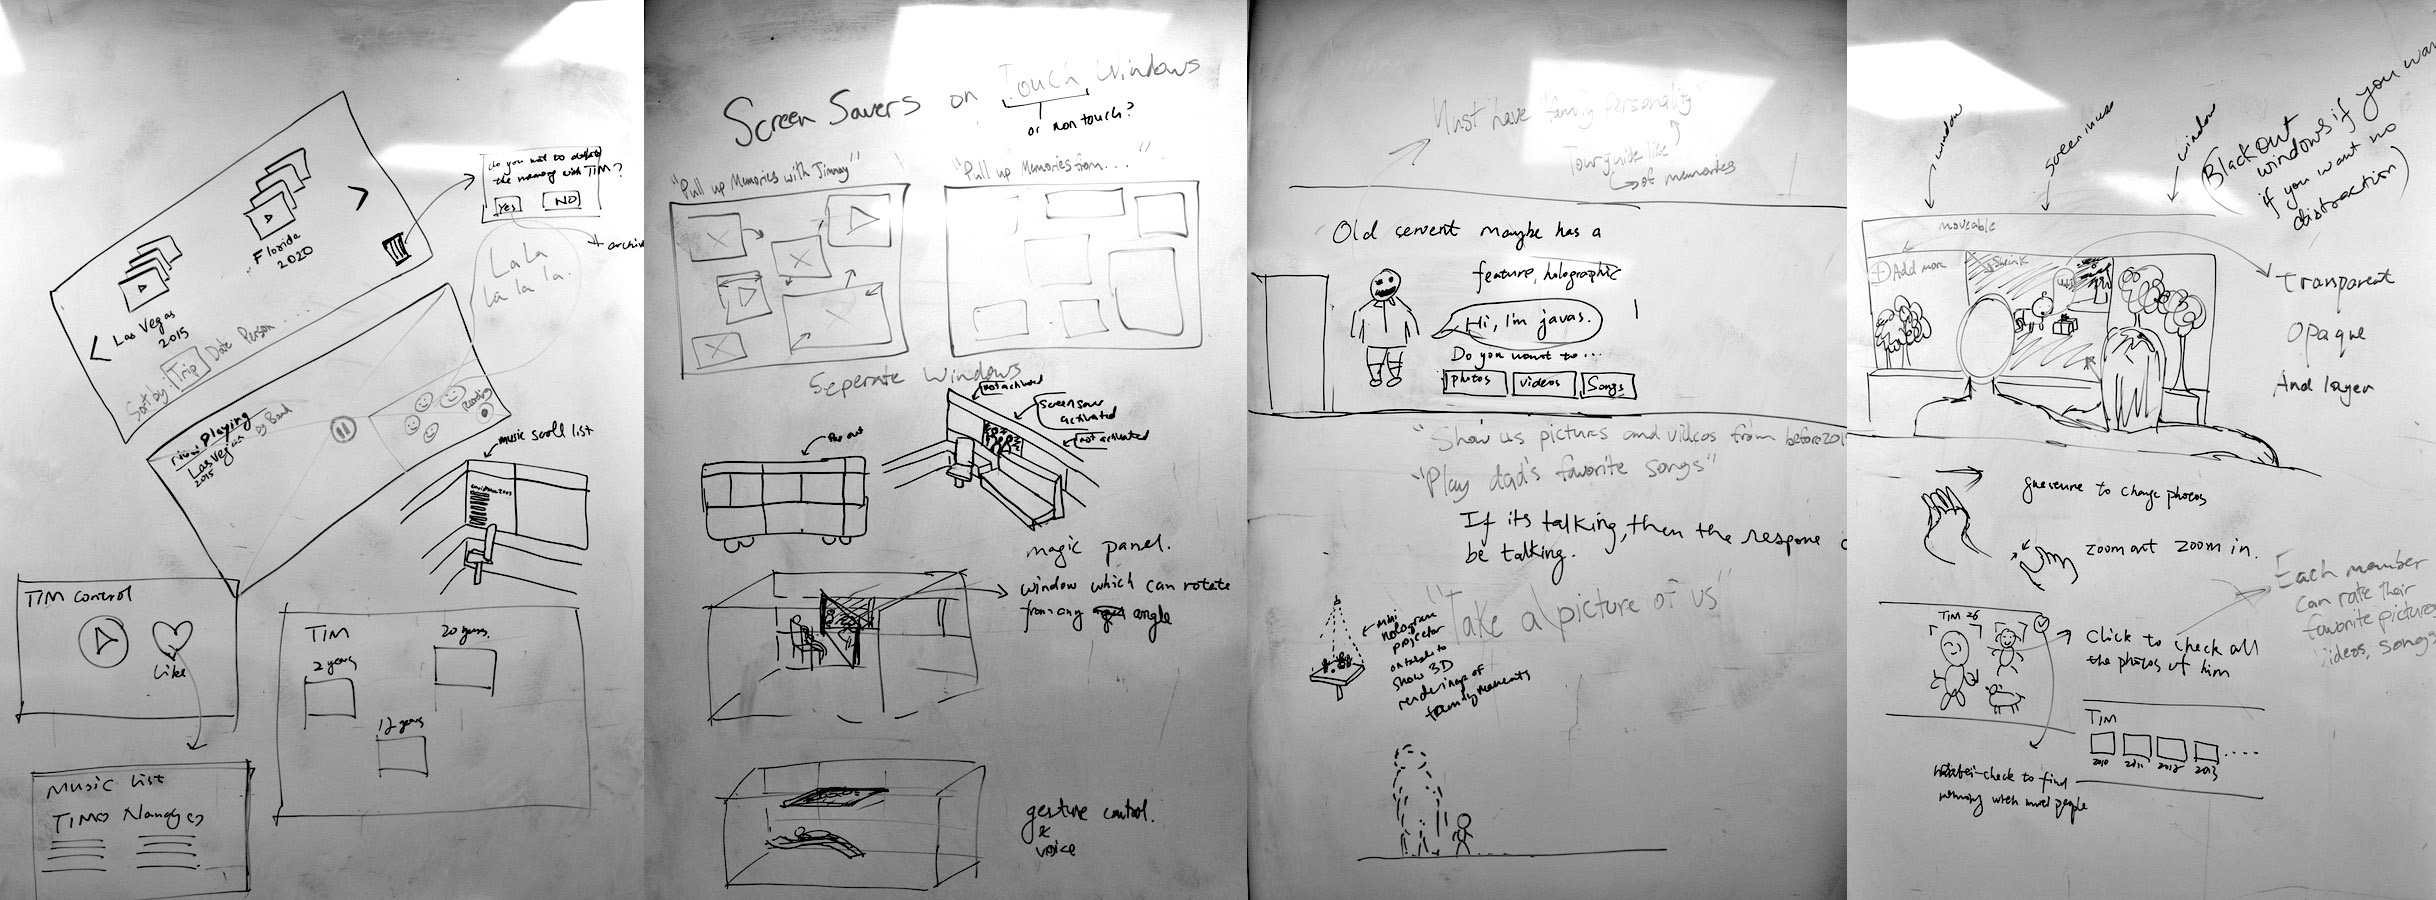 Do you want to delete
the memory with TIM?
Yes
NO
+ archive
Florida
2020
Las Vegas
2015
Sort by: Trip Date Person....
La La
La la la.
now playing
Las Vegas by Band
2015
music scroll list
TIM control
Like
TIM
2 years
20 years.
12 years
Music List
TIM
Screen Savers on Touch Windows
or non touch?
"Pull up Memories with Jimmy"
"Pull up Memories from...."
Seperate Windows
not activated
Screen saver
activated
not activated
magic panel.
window which can rotate
from any angle
gesture control.
&
voice
Must have "family personality"
Tour guide like
of memories
Old servent maybe has a
feature, holographic
Hi, I'm javas.
Do you want to...
photos
videos
Songs
"Show us pictures and videos from before 201
"Play dad's favorite songs"
If its talking, then the respone c
be talking.
"Take a picture of us"
mini
hologram
projector
on table to
show 3D
renderings of
family moments
window
window
(Black out
windows if you wan
if you want no
distraction)
moveable
+ Add more
Shrink
Transparent
Opaque
And layer
to change photos
zoom out zoom in.
Each member
can rate their
favorite pictures
videos, songs
TIM 26
Click to check all
the photos of him
TIM
2010 2011 2012 2013
-check to find
with people